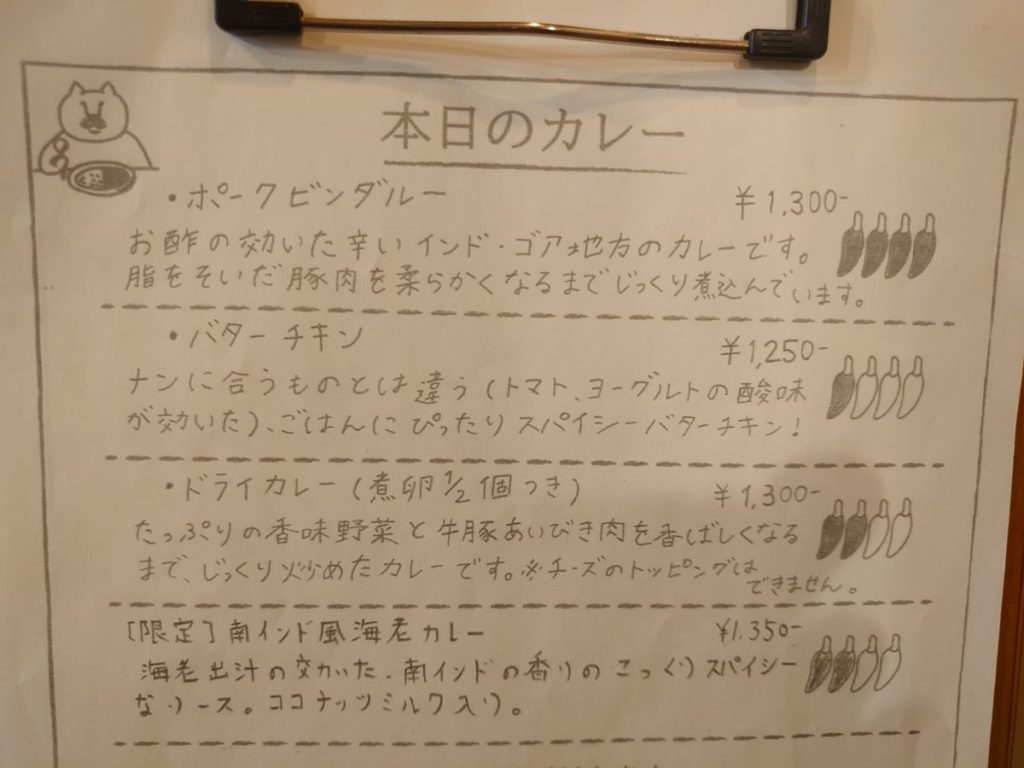 本日のカレー
・ポークビンダルー ¥1,300-
お酢の効いた辛いインド・ゴア地方のカレーです。
脂をそいだ豚肉を柔らかくなるまでじっくり煮込んでいます。
・バターチキン ¥1,250-
ナンに合うものとは違う(トマト、ヨーグルトの酸味
が効いた)、ごはんにぴったりスパイシーバターチキン!
・ドライカレー(煮卵1/2個つき) ¥1,300-
たっぷりの香味野菜と牛豚あいびき肉を香ばしくなる
まで、じっくり炒めたカレーです。※チーズのトッピングは
できません。
[限定]南インド風海老カレー ¥1.350-
海老出汁の効いた、南インドの香りのこっくりスパイシー
なソース。ココナッツミルク入り。